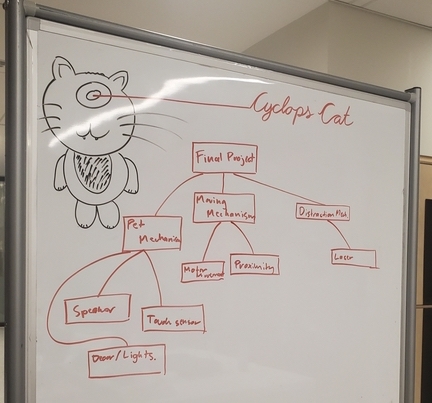 Cyclops Cat
Final Project
Pet
Mechanism
Moving
Mechanism
Distraction
Motor
Proximity
Laser
Speaker
Touch sensor
Door/Lights.